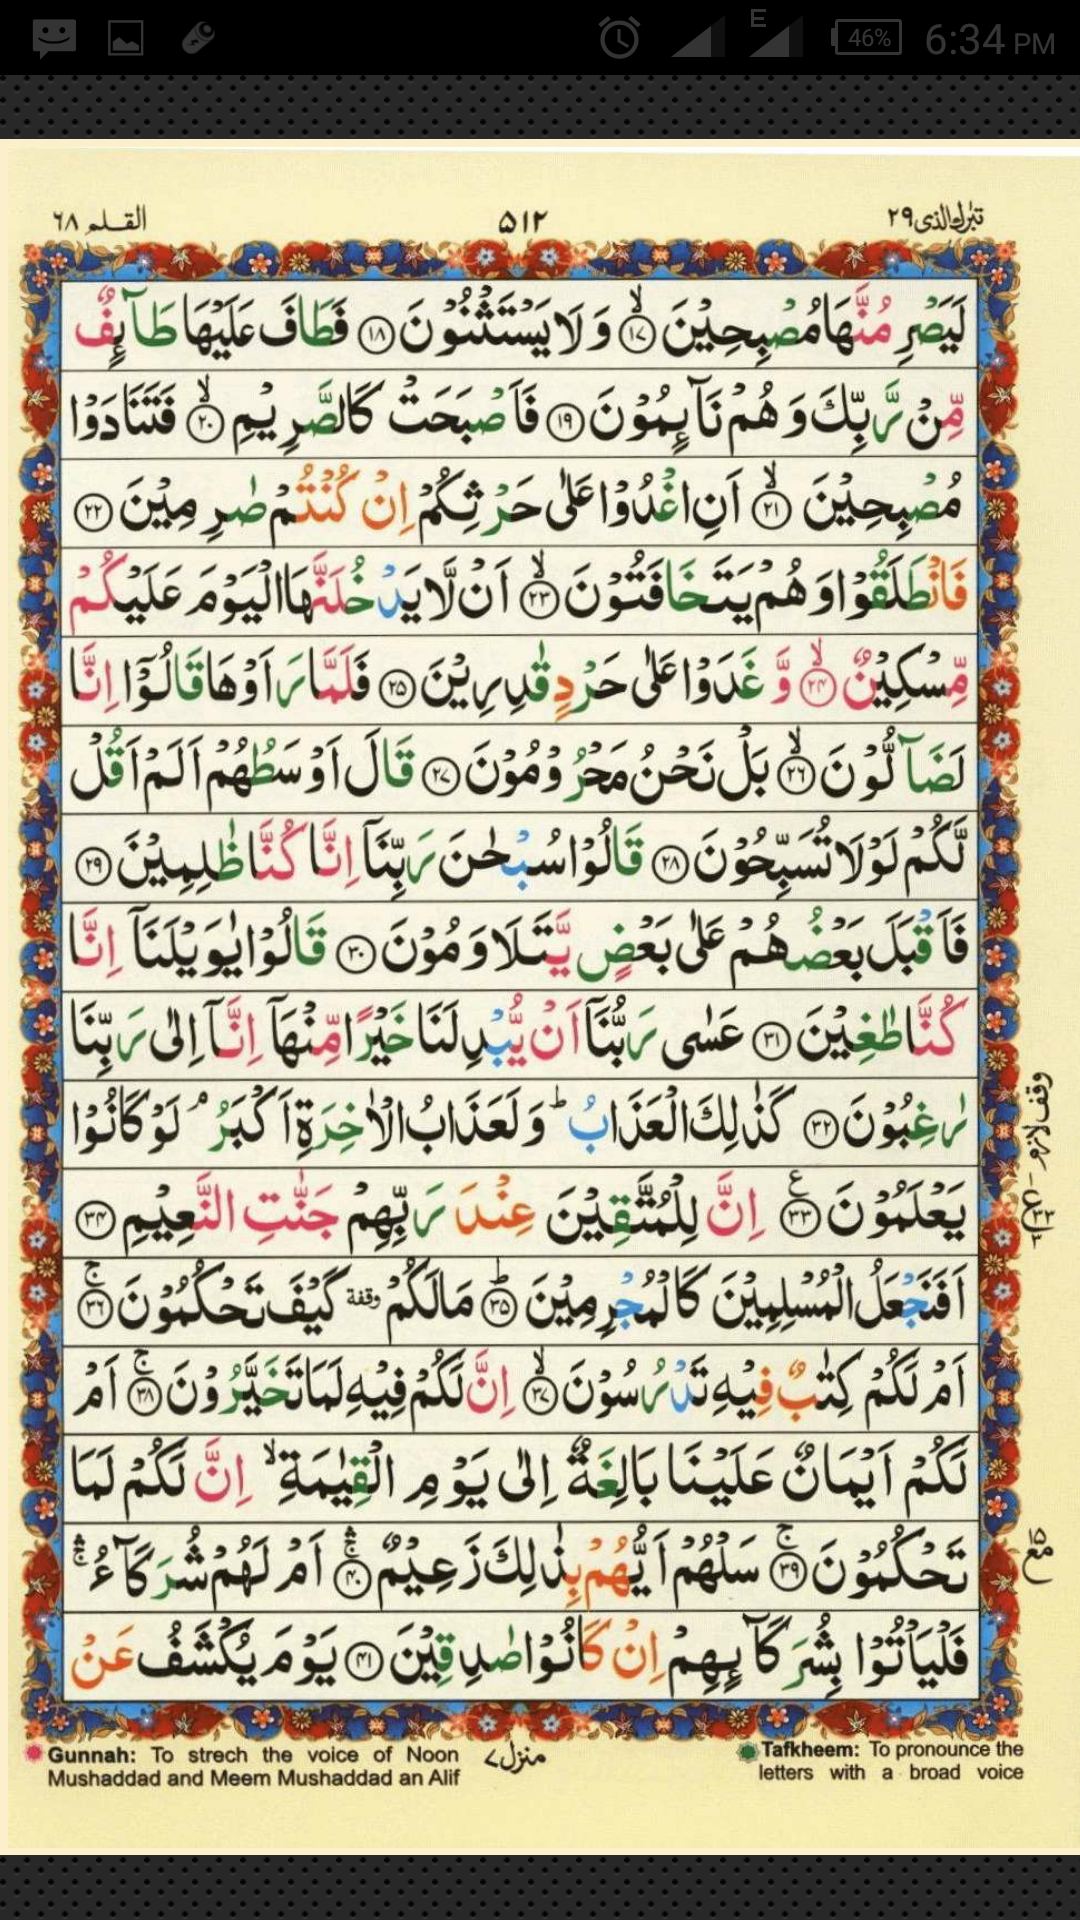 46% 6:34 PM
تبٰرك الذی ٢٩ ٥١٢ القلم ٦٨
لَيَصْرِمُنَّهَا مُصْبِحِيْنَ ۙ﴿١٧﴾ وَلَا يَسْتَثْنُوْنَ ﴿١٨﴾ فَطَافَ عَلَيْهَا طَآىِٕفٌ
مِّنْ رَّبِّكَ وَهُمْ نَآىِٕمُوْنَ ﴿١٩﴾ فَاَصْبَحَتْ كَالصَّرِيْمِ ۙ﴿٢٠﴾ فَتَنَادَوْا
مُصْبِحِيْنَ ۙ﴿٢١﴾ اَنِ اغْدُوْا عَلٰى حَرْثِكُمْ اِنْ كُنْتُمْ صٰرِمِيْنَ ﴿٢٢﴾
فَانْطَلَقُوْا وَهُمْ يَتَخَافَتُوْنَ ۙ﴿٢٣﴾ اَنْ لَّا يَدْخُلَنَّهَا الْيَوْمَ عَلَيْكُمْ
مِّسْكِيْنٌ ۙ﴿٢٤﴾ وَّغَدَوْا عَلٰى حَرْدٍ قٰدِرِيْنَ ﴿٢٥﴾ فَلَمَّا رَاَوْهَا قَالُوْٓا اِنَّا
لَضَآلُّوْنَ ۙ﴿٢٦﴾ بَلْ نَحْنُ مَحْرُوْمُوْنَ ﴿٢٧﴾ قَالَ اَوْسَطُهُمْ اَلَمْ اَقُلْ
لَّكُمْ لَوْلَا تُسَبِّحُوْنَ ﴿٢٨﴾ قَالُوْا سُبْحٰنَ رَبِّنَآ اِنَّا كُنَّا ظٰلِمِيْنَ ﴿٢٩﴾
فَاَقْبَلَ بَعْضُهُمْ عَلٰى بَعْضٍ يَّتَلَاوَمُوْنَ ﴿٣٠﴾ قَالُوْا يٰوَيْلَنَآ اِنَّا
كُنَّا طٰغِيْنَ ﴿٣١﴾ عَسٰى رَبُّنَآ اَنْ يُّبْدِلَنَا خَيْرًا مِّنْهَآ اِنَّآ اِلٰى رَبِّنَا
رٰغِبُوْنَ ﴿٣٢﴾ كَذٰلِكَ الْعَذَابُ ؕ وَلَعَذَابُ الْاٰخِرَةِ اَكْبَرُ ۘ لَوْ كَانُوْا
يَعْلَمُوْنَ ﴿٣٣﴾ اِنَّ لِلْمُتَّقِيْنَ عِنْدَ رَبِّهِمْ جَنّٰتِ النَّعِيْمِ ﴿٣٤﴾
اَفَنَجْعَلُ الْمُسْلِمِيْنَ كَالْمُجْرِمِيْنَ ؕ﴿٣٥﴾ مَالَكُمْ وقفة كَيْفَ تَحْكُمُوْنَ ۚ﴿٣٦﴾
اَمْ لَكُمْ كِتٰبٌ فِيْهِ تَدْرُسُوْنَ ۙ﴿٣٧﴾ اِنَّ لَكُمْ فِيْهِ لَمَا تَخَيَّرُوْنَ ۚ﴿٣٨﴾ اَمْ
لَكُمْ اَيْمَانٌ عَلَيْنَا بَالِغَةٌ اِلٰى يَوْمِ الْقِيٰمَةِ ۙ اِنَّ لَكُمْ لَمَا
تَحْكُمُوْنَ ۚ﴿٣٩﴾ سَلْهُمْ اَيُّهُمْ بِذٰلِكَ زَعِيْمٌ ۛۚ﴿٤٠﴾ اَمْ لَهُمْ شُرَكَآءُ ۛۚ
فَلْيَاْتُوْا بِشُرَكَآىِٕهِمْ اِنْ كَانُوْا صٰدِقِيْنَ ﴿٤١﴾ يَوْمَ يُكْشَفُ عَنْ
وقف لازم
١٥
مع
منزل ٧
Gunnah: To strech the voice of Noon
Mushaddad and Meem Mushaddad an Alif
Tafkheem: To pronounce the
letters with a broad voice